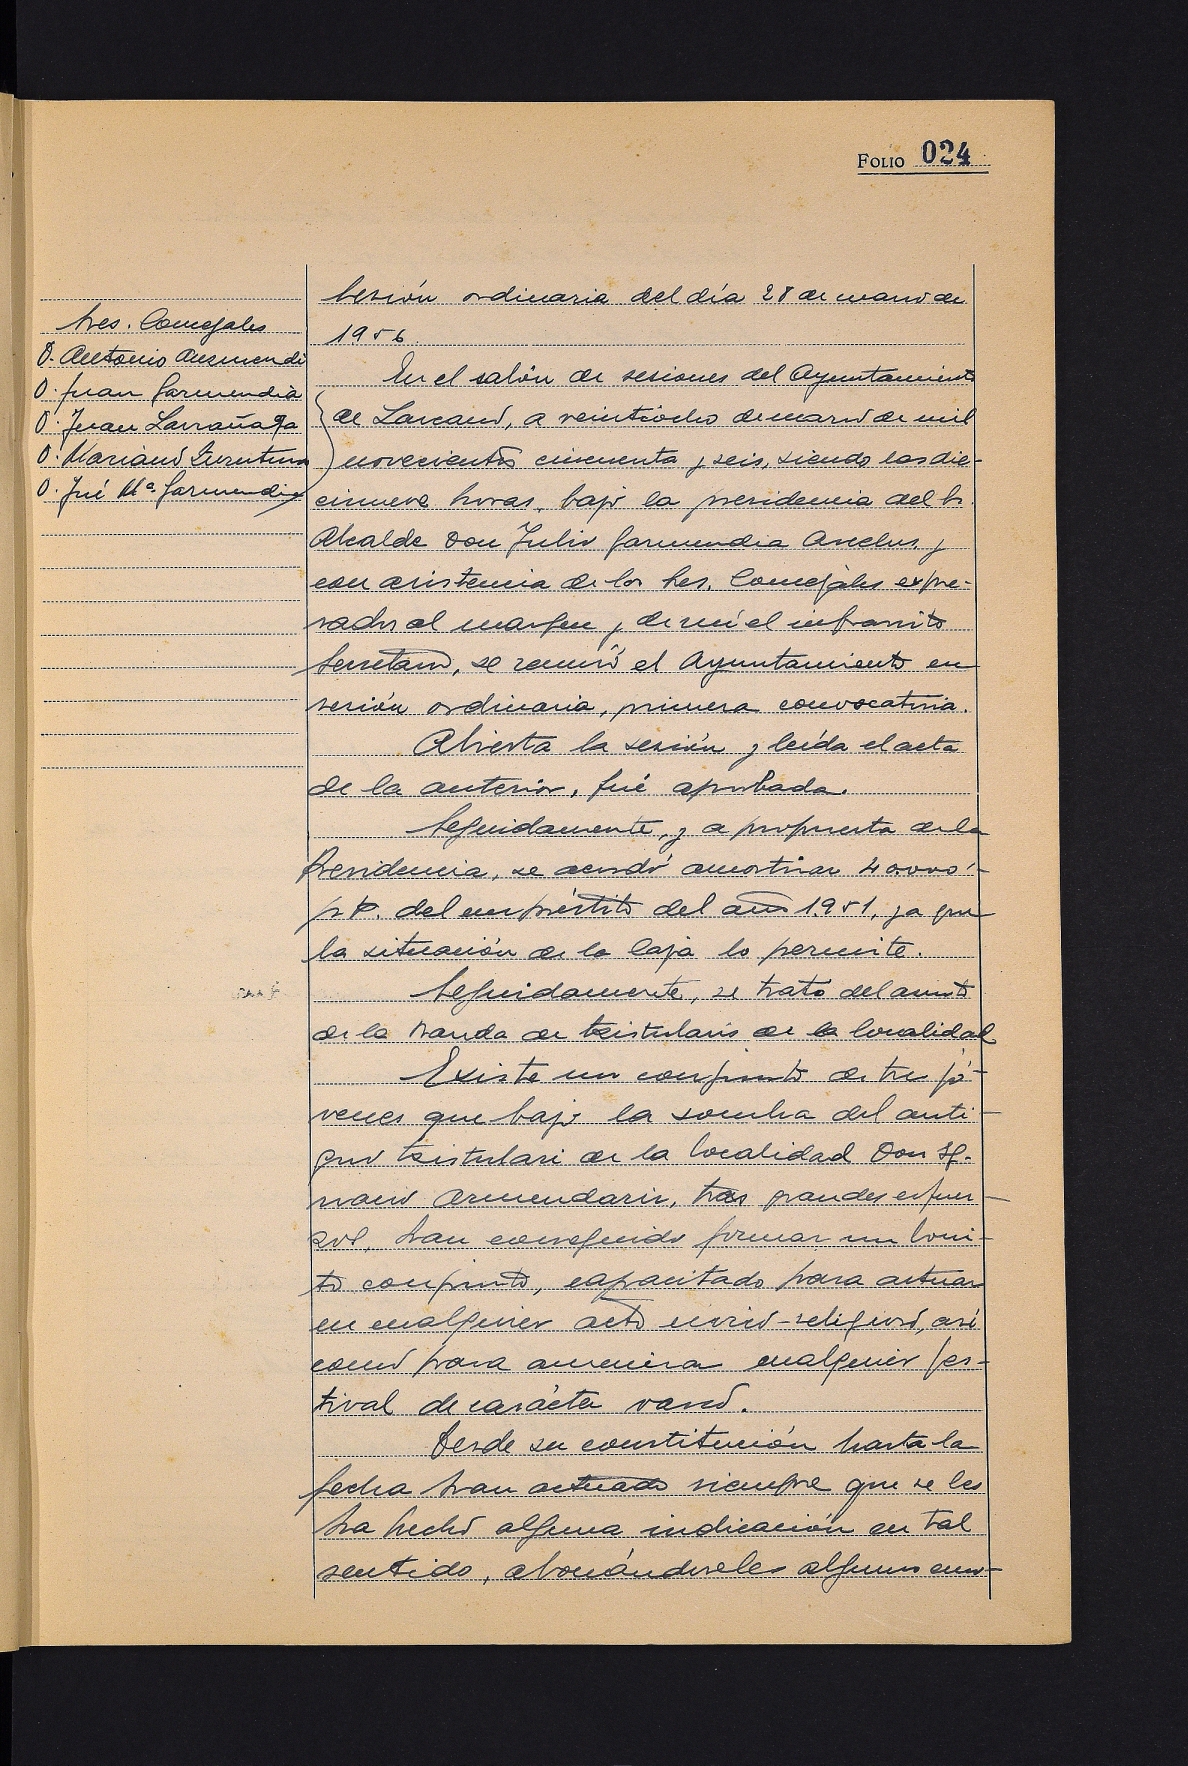 FOLIO 024
Sres. Concejales
D. Antonio Auzmendi
D. Juan Garmendia
D. Juan Larrañaga
D. Mariano
D. José Mª. Garmendia
Sesión ordinaria del día 28 de marzo de
1956.
En el salón de sesiones del Ayuntamiento
de Lazcano, a veintiocho de marzo de mil
novecientos cincuenta y seis, siendo las die-
cinueve horas, bajo la presidencia del Sr.
Alcalde Don Julio Garmendia Aseclus y
con asistencia de los Sres. Concejales expre-
sados al margen y de mí el infrascrito
Secretario, se reunió el Ayuntamiento en
sesión ordinaria, primera convocatoria.
Abierta la sesión y leída el acta
de la anterior, fué aprobada.
Seguidamente, y a propuesta de la
Presidencia, se acordó amortizar 40.000'-
del empréstito del año 1.951, ya que
la situación de la Caja lo permite.
Seguidamente, se trató del asunto
de la banda de txistularis de la localidad
Existe un conjunto de tres jó-
venes que bajo la sombra del anti-
guo txistulari de la localidad Don Ig-
nacio Armendariz, tras grandes esfuer-
zos, han conseguido formar un boni-
to conjunto, capacitado para actuar
en cualquier acto cívico-religioso, así
como para amenizar cualquier fes-
tival de carácter vasco.
Desde su constitución hasta la
fecha han actuado siempre que se les
ha hecho alguna indicación en tal
sentido, abonándoseles algunos emo-